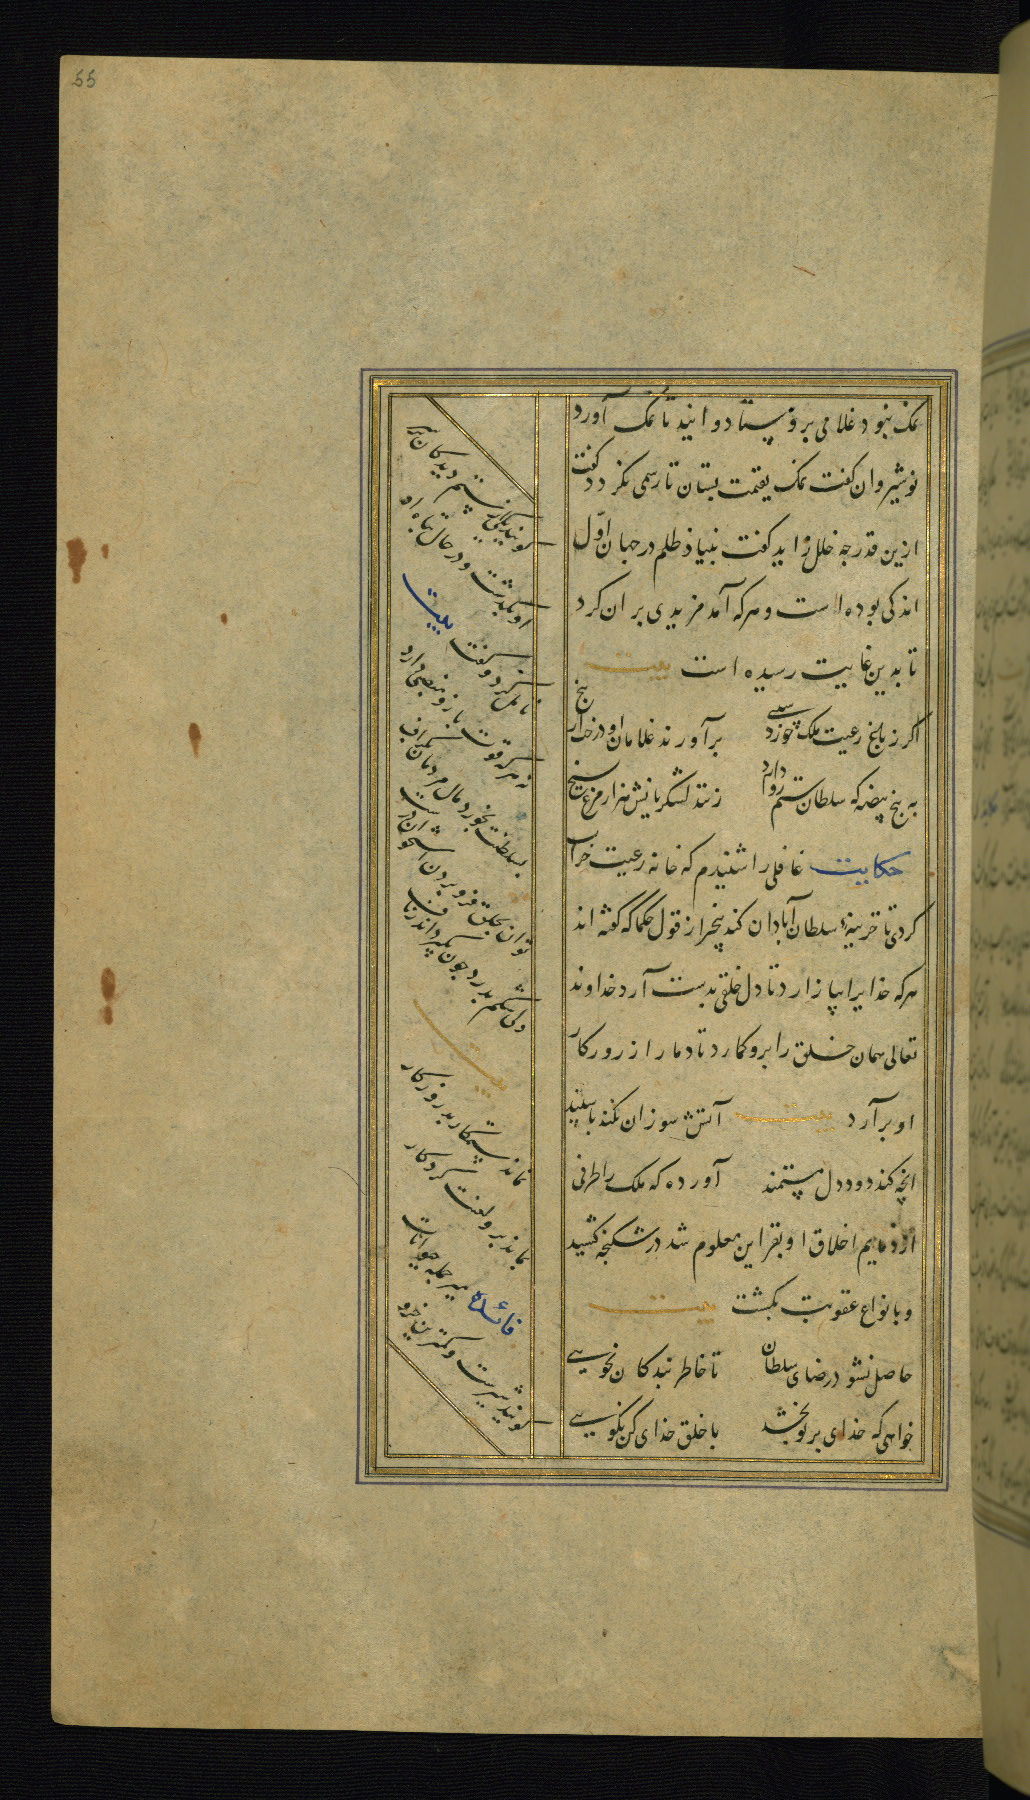 55
نمک نبود غلامی بروستا دوانید تا نمک آورد
نوشیروان گفت نمک بقیمت بستان تا رسمی نگردد گفت
ازین قدر چه خلل زاید گفت بنیاد ظلم در جهان اول
اندکی بوده است و هرکه آمد مزیدی بران کرد
تا بدین غایت رسیده است بیت
اگر ز باغ رعیت ملک خورد سیبی
برآورند غلامان او درخت از بیخ
به پنج بیضه که سلطان ستم روا دارد
زنند لشکریانش هزار مرغ بسیخ
حکایت غافلی را شنیدم که خانه رعیت خراب
کردی تا خزینه سلطان آبادان کند بیخبر از قول حکما که گفته اند
هرکه خدایرا بیازارد تا دل خلقی بدست آرد خداوند
تعالی همان خلق را برو گمارد تا دمار از روزگار
او برآرد بیت آتش سوزان نکند با سپند
انچه کند دود دل مستمند
آورده که ملک را طرفی
از ذمایم اخلاق او بقراین معلوم شد در شکنجه کشید
و بانواع عقوبت بکشت بیت
حاصل نشود رضای سلطان
تا خاطر بندگان نجویی
خواهی که خدای بر تو بخشد
با خلق خدای کن نکویی
گویند یکی از ستم دیدگان بر سر
او بگذشت و در حال تباه او
تامل کرد و گفت بیت
نه هر که قوت بازو و منصبی دارد
بسلطنت بخورد مال مردمان بگزاف
توان بحلق فرو بردن استخوان درشت
ولی شکم بدرد چون بگیرد اندر ناف
بیت
نماند ستمکار بد روزگار
بماند برو لعنت کردگار
فائده سر جمله حیوانات
گویند شیرست و کمترین خر و